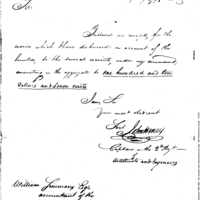 Sir
Enclosed are receipts for the
monies which I have disbursed on account of the
bounties to the several recruits under my command,
amounting in the aggregate to one hundred and two
dollars and seven cents
I am Sir
Your most obedient
Captain in the 2nd Regt
Artillerists and Engineers
William Simmons Esqr
accountant of the